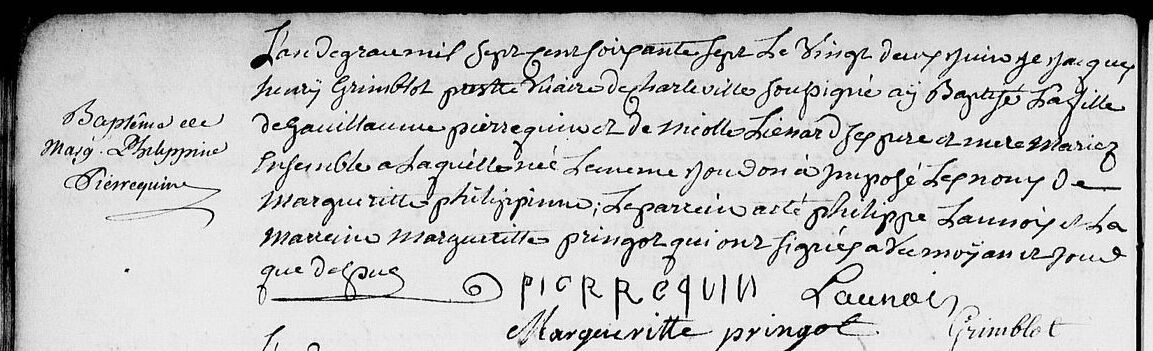 Baptême de
Marg. Philippine
Pierrequine
L'an de grace mil sept cent soixante sept Le Vingt deux Juin je Jacques
henry Grimblot prestre Vicaire de Charleville soussigné ay Baptisé La fille
de Guillaume pierrequin et de nicolle Lienard ses pere et mere Mariez
Ensemble a Laquelle née Le meme Jour on à Imposé Les noms de
Margueritte philippinne, Le parrein a eté philippe Launois et La
Marreine Margueritte pringot qui ont signés avec moy an et Jour
que dessus
PIERREQUIN Launois
Margueritte pringot Grimblot